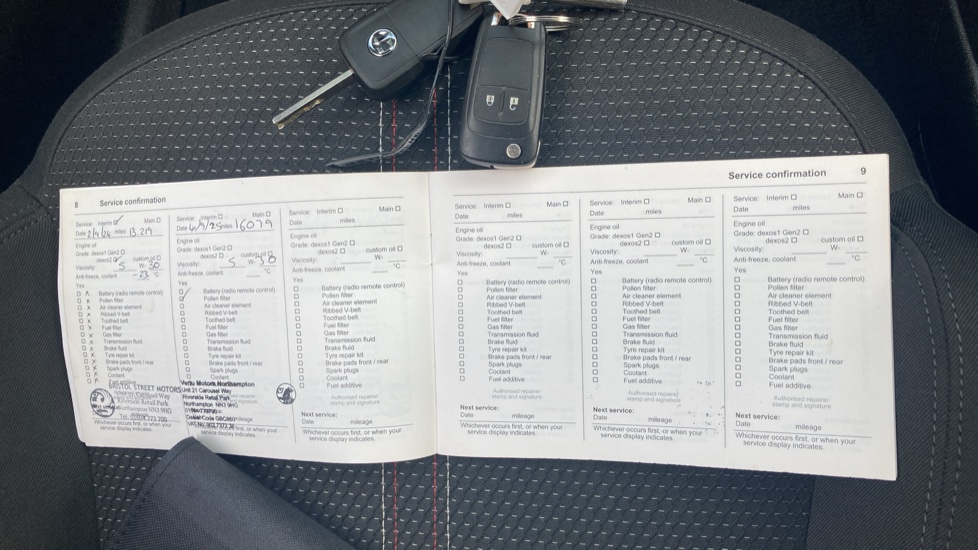 8 Service confirmation
Service: Interim ☐ Main ☐
Date 2/9/24 miles 13,219
Engine oil
Grade: dexos1 Gen2 ☐
dexos2 ☐ custom oil ☐
Viscosity: 5 W- 30
Anti-freeze, coolant -25 °C
Yes
☐ x Battery (radio remote control)
☐ x Pollen filter
☐ x Air cleaner element
☐ x Ribbed V-belt
☐ x Toothed belt
☐ x Fuel filter
☐ x Gas filter
☐ x Transmission fluid
☐ x Brake fluid
☐ x Tyre repair kit
☐ x Brake pads front / rear
☐ x Spark plugs
☐ x Coolant
☐ x Fuel additive
BRISTOL STREET MOTORS
Carousel Way
Riverside Retail Park
Northampton NN3 9HG
Whichever occurs first, or when your
service display indicates.
Service: Interim ☐ Main ☐
Date miles 16079
Engine oil
Grade: dexos1 Gen2 ☐
dexos2 ☐ custom oil ☐
Viscosity: 5 W- 30
Anti-freeze, coolant °C
Yes
☐ Battery (radio remote control)
☐ Pollen filter
☐ Air cleaner element
☐ Ribbed V-belt
☐ Toothed belt
☐ Fuel filter
☐ Gas filter
☐ Transmission fluid
☐ Brake fluid
☐ Tyre repair kit
☐ Brake pads front / rear
☐ Spark plugs
☐ Coolant
☐ Fuel additive
Vertu Motors Northampton
Unit 21 Carousel Way
Riverside Retail Park
Northampton NN3 9HG
Whichever occurs first, or when your
service display indicates.
Service: Interim ☐ Main ☐
Date miles
Engine oil
Grade: dexos1 Gen2 ☐
dexos2 ☐ custom oil ☐
Viscosity: W-
Anti-freeze, coolant °C
Yes
☐ Battery (radio remote control)
☐ Pollen filter
☐ Air cleaner element
☐ Ribbed V-belt
☐ Toothed belt
☐ Fuel filter
☐ Gas filter
☐ Transmission fluid
☐ Brake fluid
☐ Tyre repair kit
☐ Brake pads front / rear
☐ Spark plugs
☐ Coolant
☐ Fuel additive
Authorised repairer
stamp and signature
Next service:
Date mileage
Whichever occurs first, or when your
service display indicates.
Service confirmation 9
Service: Interim ☐ Main ☐
Date miles
Engine oil
Grade: dexos1 Gen2 ☐
dexos2 ☐ custom oil ☐
Viscosity: W-
Anti-freeze, coolant °C
Yes
☐ Battery (radio remote control)
☐ Pollen filter
☐ Air cleaner element
☐ Ribbed V-belt
☐ Toothed belt
☐ Fuel filter
☐ Gas filter
☐ Transmission fluid
☐ Brake fluid
☐ Tyre repair kit
☐ Brake pads front / rear
☐ Spark plugs
☐ Coolant
☐ Fuel additive
Authorised repairer
stamp and signature
Next service:
Date mileage
Whichever occurs first, or when your
service display indicates.
Service: Interim ☐ Main ☐
Date miles
Engine oil
Grade: dexos1 Gen2 ☐
dexos2 ☐ custom oil ☐
Viscosity: W-
Anti-freeze, coolant °C
Yes
☐ Battery (radio remote control)
☐ Pollen filter
☐ Air cleaner element
☐ Ribbed V-belt
☐ Toothed belt
☐ Fuel filter
☐ Gas filter
☐ Transmission fluid
☐ Brake fluid
☐ Tyre repair kit
☐ Brake pads front / rear
☐ Spark plugs
☐ Coolant
☐ Fuel additive
Authorised repairer
stamp and signature
Next service:
Date mileage
Whichever occurs first, or when your
service display indicates.
Service: Interim ☐ Main ☐
Date miles
Engine oil
Grade: dexos1 Gen2 ☐
dexos2 ☐ custom oil ☐
Viscosity: W-
Anti-freeze, coolant °C
Yes
☐ Battery (radio remote control)
☐ Pollen filter
☐ Air cleaner element
☐ Ribbed V-belt
☐ Toothed belt
☐ Fuel filter
☐ Gas filter
☐ Transmission fluid
☐ Brake fluid
☐ Tyre repair kit
☐ Brake pads front / rear
☐ Spark plugs
☐ Coolant
☐ Fuel additive
Authorised repairer
stamp and signature
Next service:
Date mileage
Whichever occurs first, or when your
service display indicates.